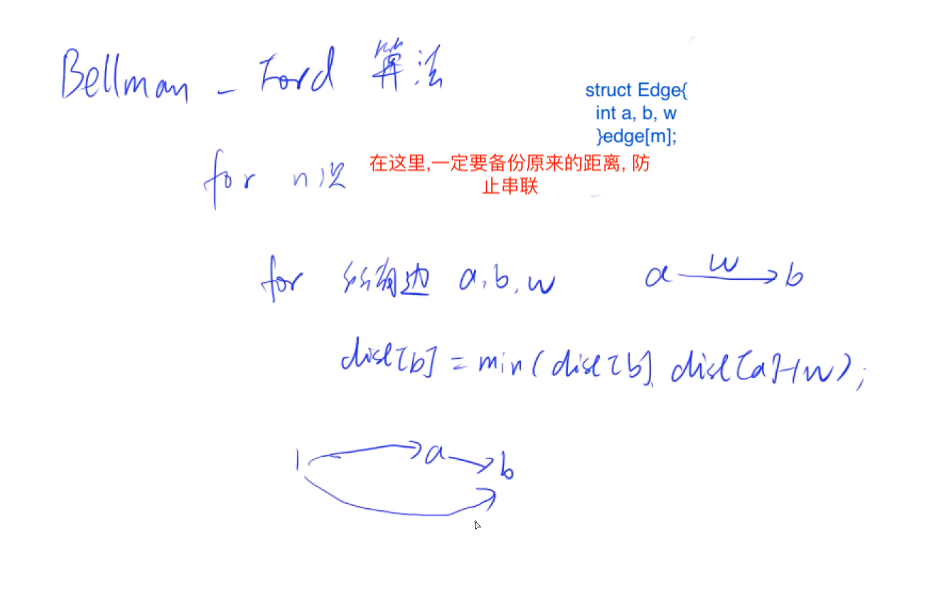 Bellman - Ford 算法
struct Edge{
int a, b, w
}edge[m];
for n次
在这里,一定要备份原来的距离, 防
止串联
for 所有边 a, b, w
a w b
dist[b] = min(dist[b], dist[a]+w);
1 a b